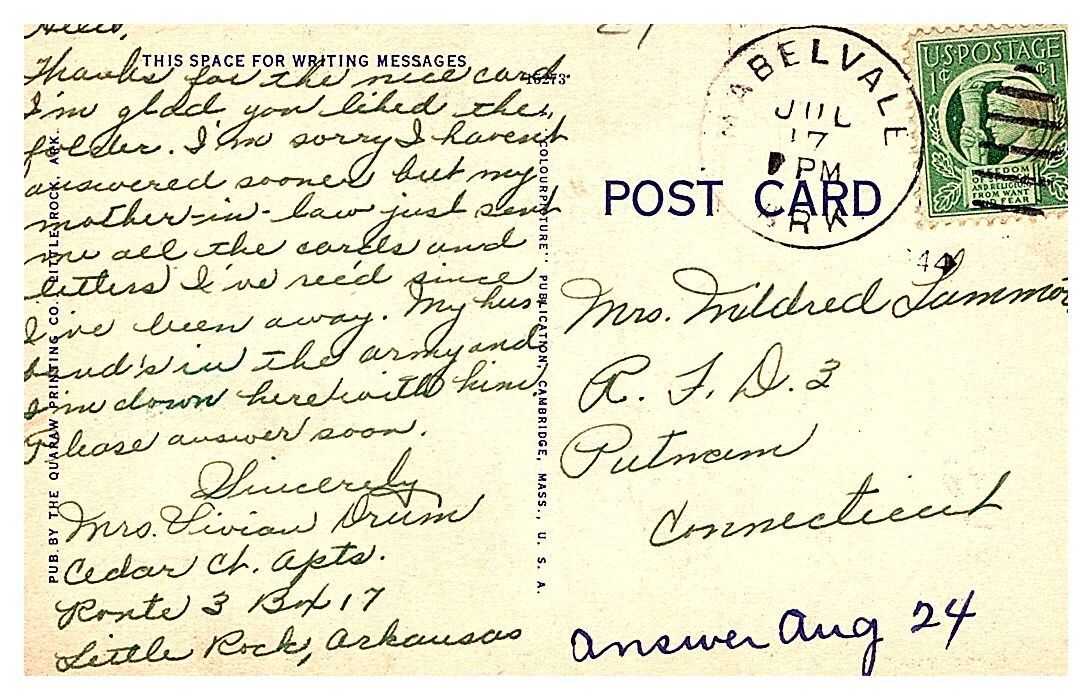 Hello,
THIS SPACE FOR WRITING MESSAGES
Thanks for the nice card
I'm glad you liked the
folder. I'm sorry I haven't
answered sooner but my
mother-in-law just sent
me all the cards and
letters I've rec'd since
I've been away. My hus
band's in the army and
I'm down here with him.
Please answer soon.
Sincerely
Mrs. Vivian Drum
Cedar Ct. Apts.
Route 3 Box 17
Little Rock, Arkansas
PUB. BY THE QUARAW PRINTING CO. LITTLE ROCK, ARK.
16273
"COLOURPICTURE" PUBLICATION, CAMBRIDGE, MASS., U. S. A.
POST CARD
MABELVALE
JUL
17
PM
ARK
U.S. POSTAGE
1¢ ¢1
AND RELIGION
FROM WANT
AND FEAR
Mrs. Mildred
R. F. D. 3
Putnam
Connecticut
Answer Aug 24